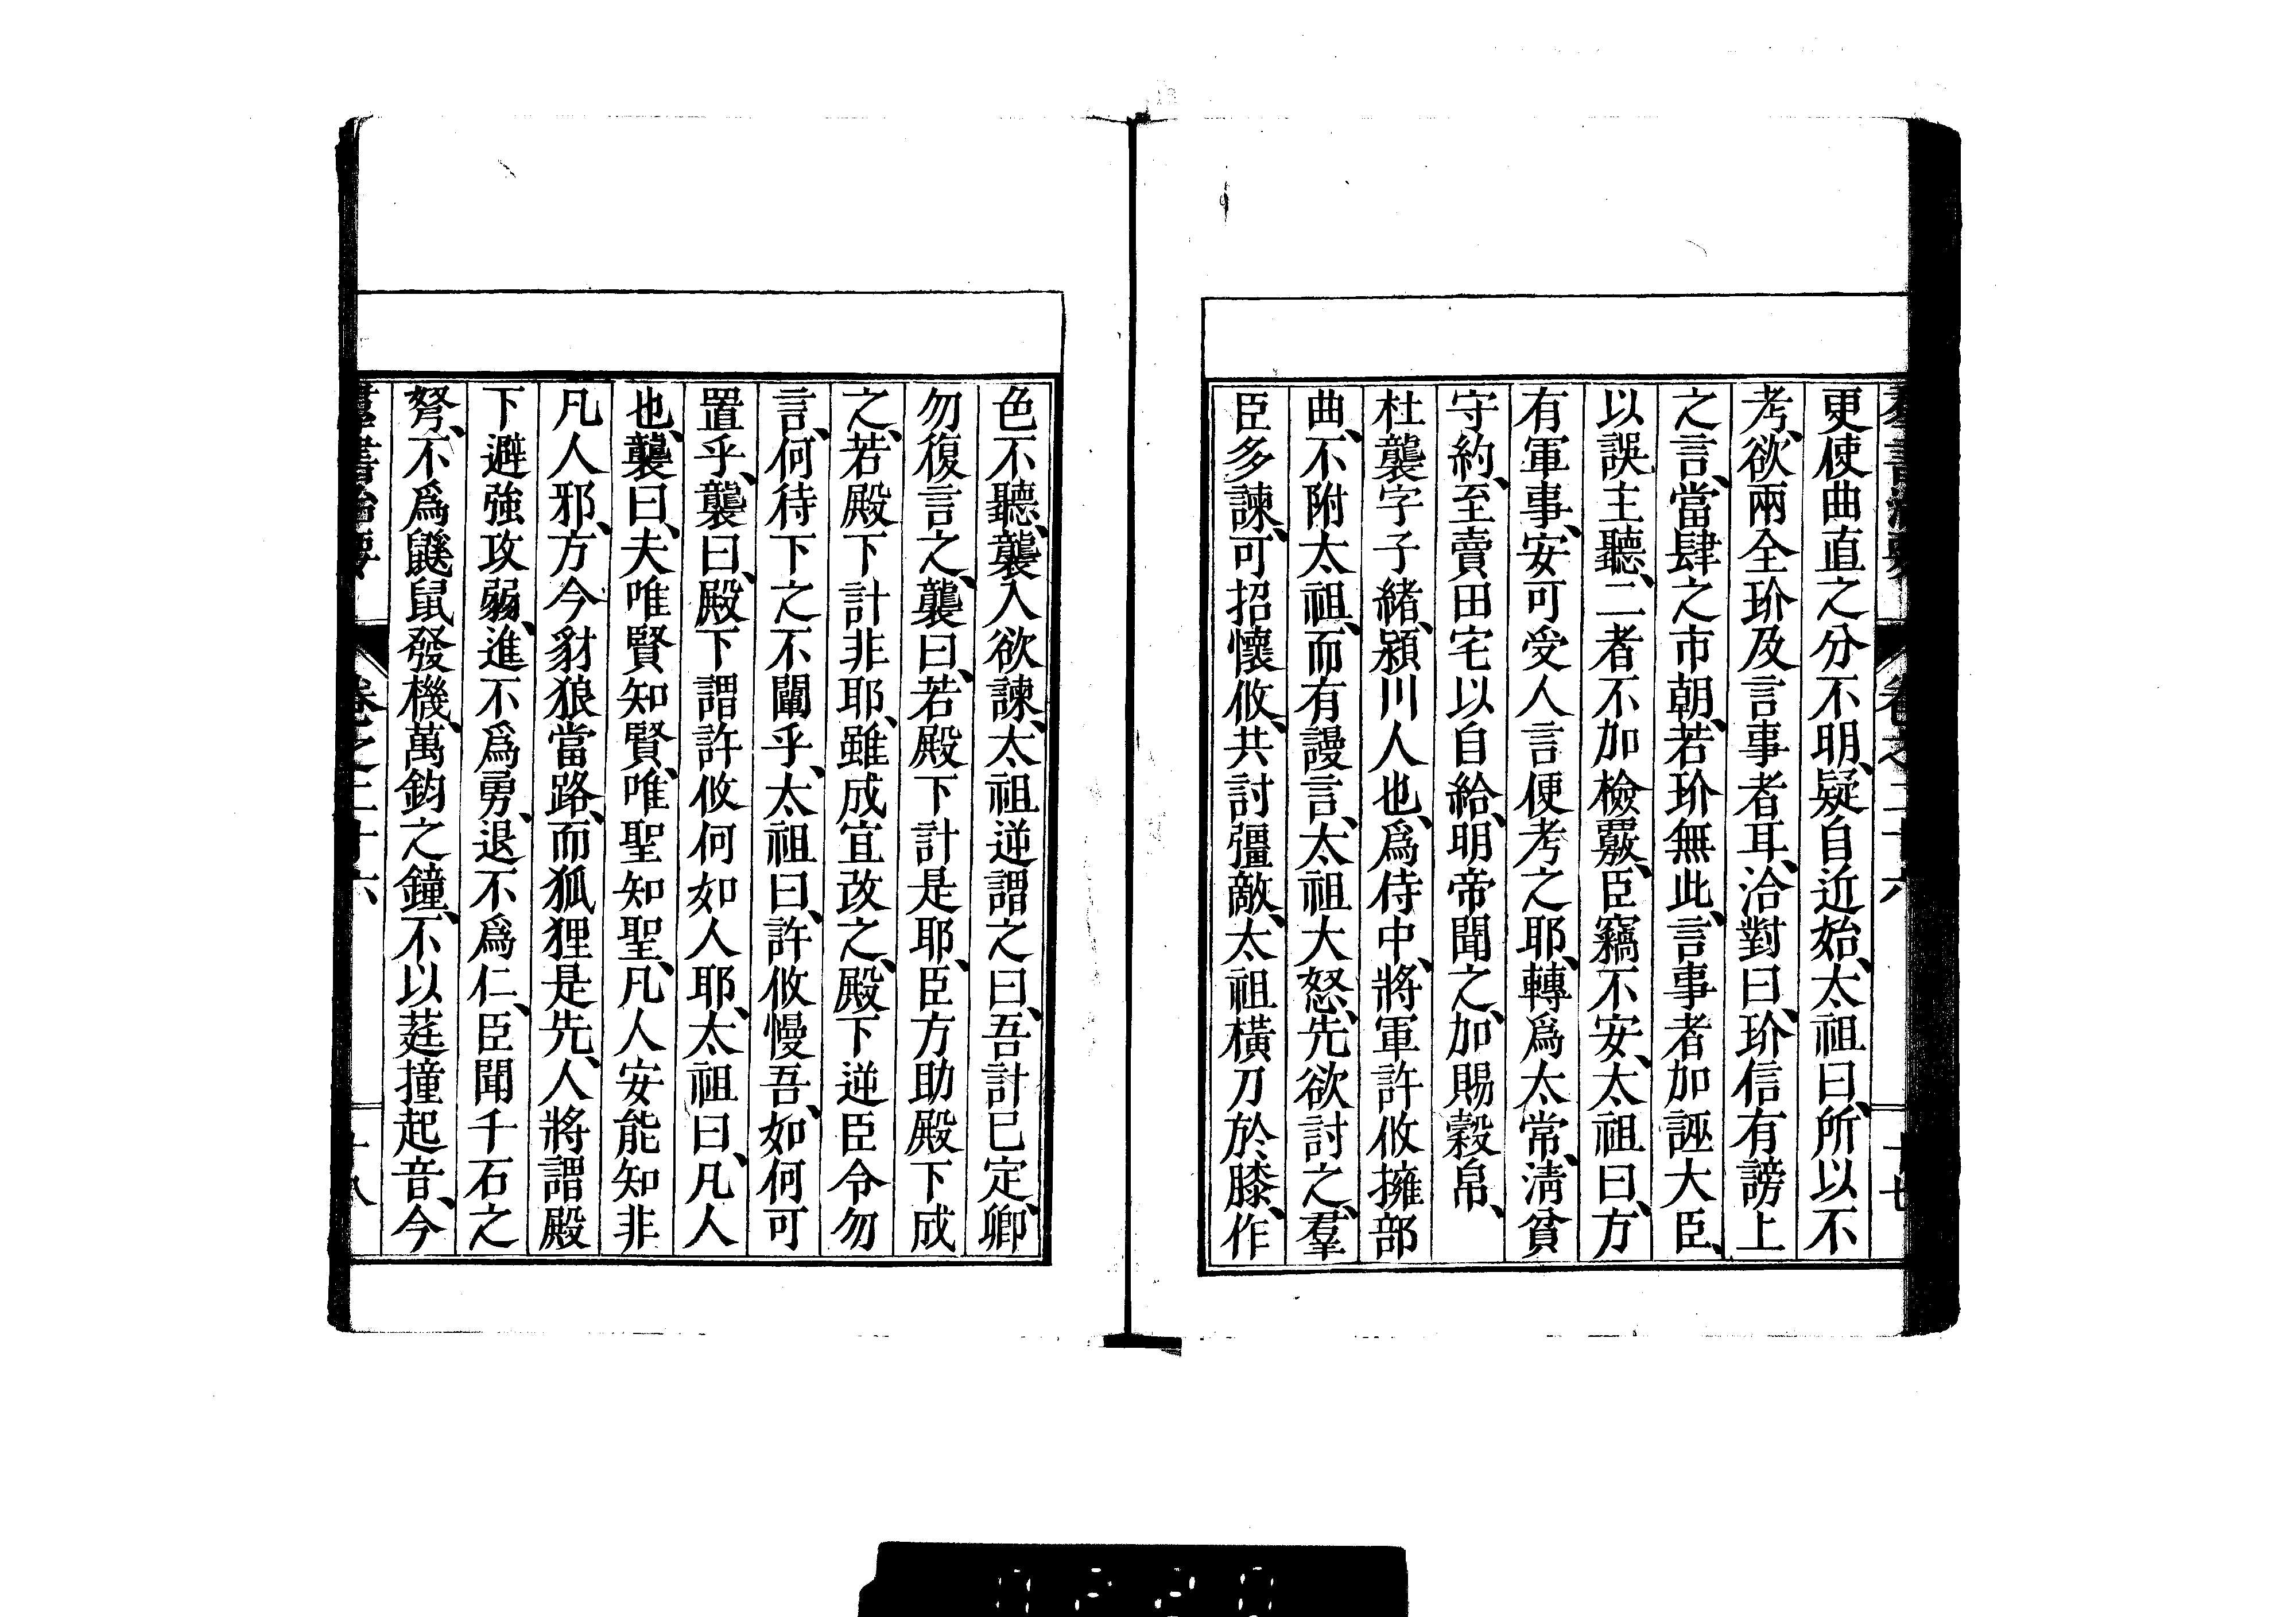 羣書治要 卷之二十六 十七
更使曲直之分不明、疑自近始、太祖曰、所以不
考、欲兩全玠及言事者耳、洽對曰、玠信有謗上
之言、當肆之市朝、若玠無此、言事者加誣大臣、
以誤主聽、二者不加檢覈、臣竊不安、太祖曰、方
有軍事、安可受人言便考之耶、轉爲太常、淸貧
守約、至賣田宅以自給、明帝聞之、加賜穀帛、
杜襲字子緒、潁川人也、爲侍中、將軍許攸擁部
曲、不附太祖、而有謾言、太祖大怒、先欲討之、羣
臣多諫、可招懷攸、共討彊敵、太祖橫刀於膝、作
色不聽、襲入欲諫、太祖逆謂之曰、吾計已定、卿
勿復言之、襲曰、若殿下計是耶、臣方助殿下成
之、若殿下計非耶、雖成宜改之、殿下逆臣令勿
言、何待下之不闡乎、太祖曰、許攸慢吾、如何可
置乎、襲曰、殿下謂許攸何如人耶、太祖曰、凡人
也、襲曰、夫唯賢知賢、唯聖知聖、凡人安能知非
凡人邪、方今豺狼當路、而狐狸是先、人將謂殿
下避強攻弱、進不爲勇、退不爲仁、臣聞千石之
弩、不爲鼷鼠發機、萬鈞之鐘、不以莛撞起音、今
羣書治要 卷之二十六 十八